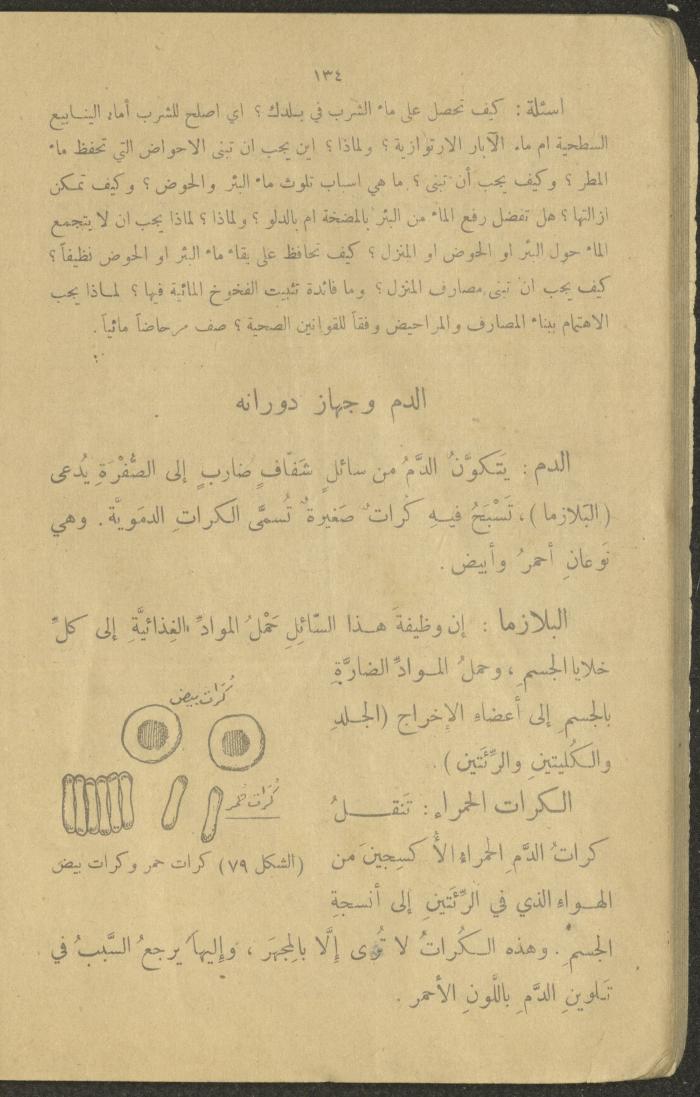 ١٣٤
اسئلة : كيف تحصل على ماء الشرب في بلدك ؟ اي اصلح للشرب أماء الينابيع
السطحية ام ماء الآبار الارتوازية ؟ ولماذا ؟ اين يجب ان تبنى الاحواض التي تحفظ ماء
المطر ؟ وكيف يجب أن تبنى ؟ ما هي اسباب تلوث ماء البئر والحوض ؟ وكيف تمكن
ازالتها ؟ هل تفضل رفع الماء من البئر بالمضخة ام بالدلو ؟ ولماذا ؟ لماذا يجب ان لا يتجمع
الماء حول البئر او الحوض او المنزل ؟ كيف نحافظ على بقاء ماء البئر او الحوض نظيفاً ؟
كيف يجب ان تبنى مصارف المنزل ؟ وما فائدة تثبيت الفخوخ المائية فيها ؟ لماذا يجب
الاهتمام ببناء المصارف والمراحيض وفقاً للقوانين الصحية ؟ صف مرحاضاً مائياً .
الدم وجهاز دورانه
الدم : يَتَكوَّنُ الدَّمُ من سائلٍ شَفّافٍ ضاربٍ إلى الصُّفْرَةِ يُدعى
( البَلازما ) ، تَسْبَحُ فيهِ كُراتٌ صَغيرةٌ تُسمَّى الكراتِ الدمَويَّةَ . وهي
نَوعانِ أحمرُ وأبيض .
البلازما : إن وظيفةَ هذا السّائلِ حَمْلُ الموادِّ الغِذائيَّةِ إلى كلِّ
خلايا الجسمِ ، وحملُ الموادِّ الضارَّةِ
بالجسمِ إلى أعضاءِ الإخراج ( الجلدِ
والكُليتينِ والرِّئَتين ) .
كُرَات بيض
كُرَات حُمر
(الشكل ٧٩) كرات حمر وكرات بيض
الكرات الحمراء : تَنقلُ
كراتُ الدَّمِ الحمراءِ الأُكسجينَ من
الهواءِ الذي في الرِّئَتَينِ إلى أنسجةِ
الجسمِ . وهذه الكُراتُ لا تُرى إلَّا بالمِجهَر ، وإليها يرجعُ السَّببُ في
تَلوينِ الدَّمِ باللَّونِ الأحمر .